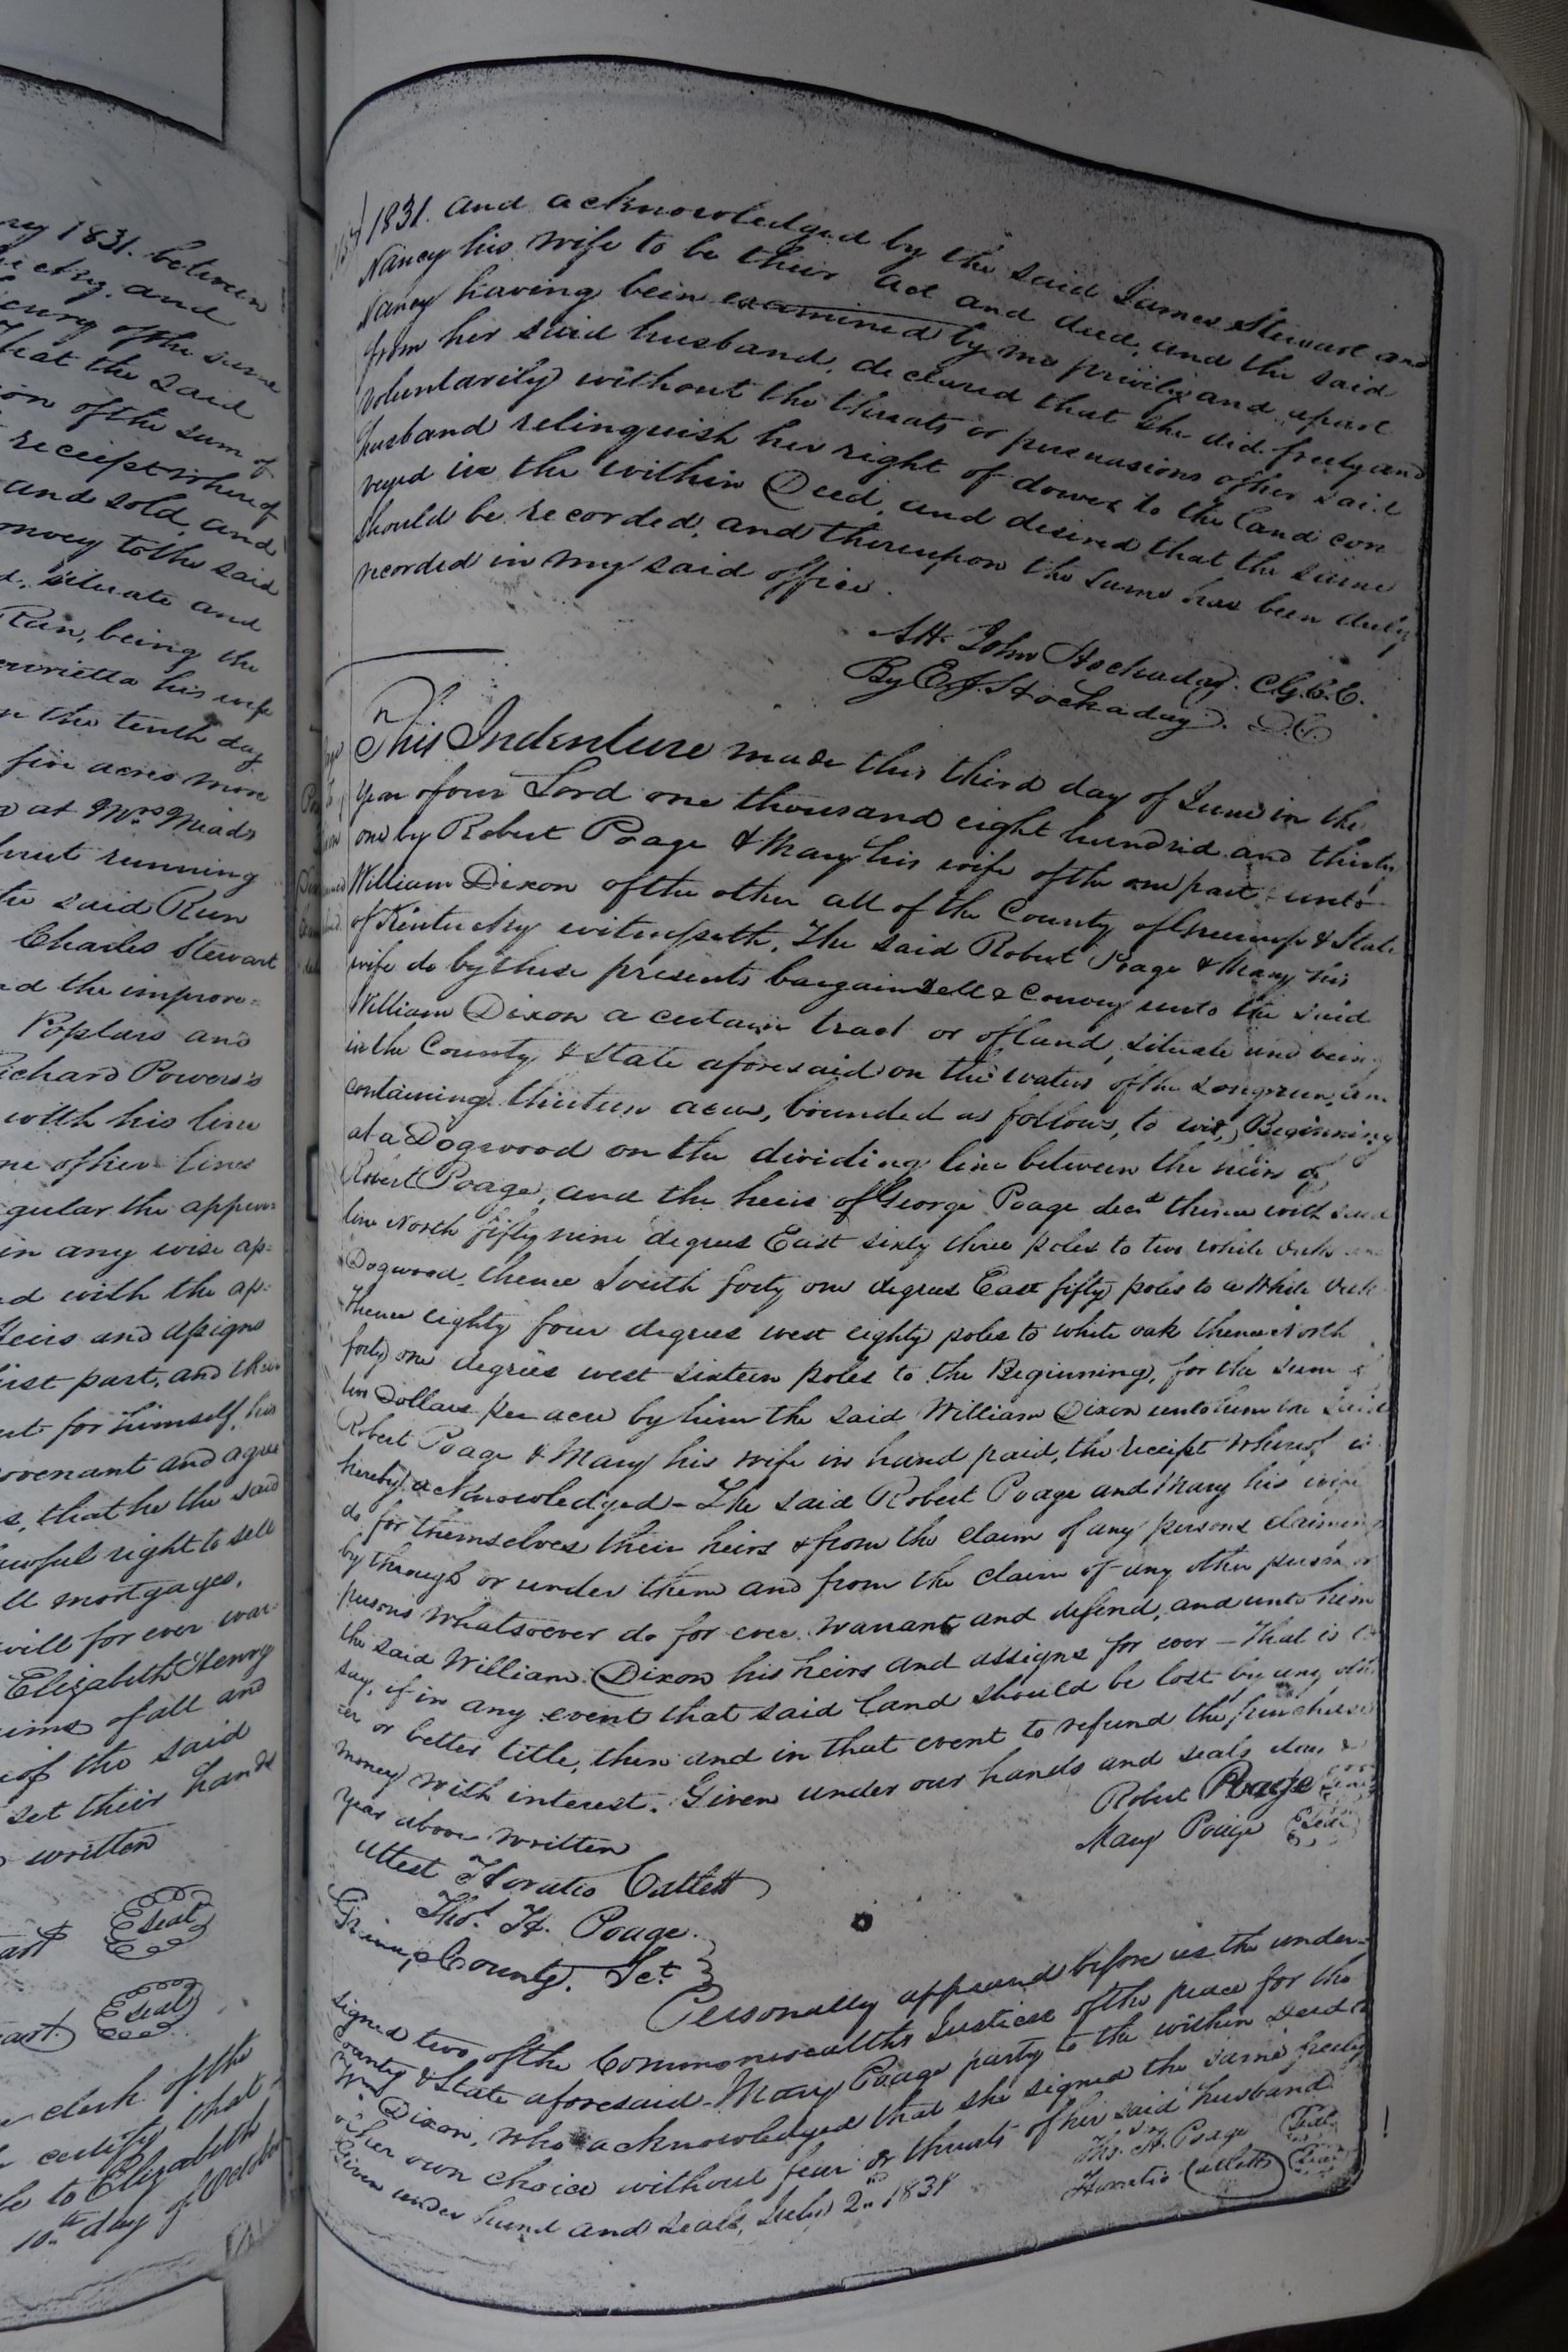 ry 1831. between
and
Henry of the same
That the said
ion of the sum of
receipt whereof
and sold, and
onvey to the said
situate and
Run, being the
enrietta his wife
n the tenth day
five acres more
at Mrs. Meads
running
the said Run
Charles Stewart
nd the improve=
Poplars and
ichard Powers's
with his line
ne of her lines
gular the appur=
in any wise ap=
nd with the ap=
Heirs and assigns
irst part, and their
for himself, his
ovenant and agree
s, that he the said
awful right to sell
ll mortgages,
will for ever war=
Elizabeth Henry
aims of all and
of the said
set their hands
written
art Seal
art Seal
clerk of the
certify that
to Elizabeth
10th day of October
1831. and acknowledged by the said James Stewart and
Nancy his wife to be their act and deed, and the said
Nancy having been examined by me privily and apart
from her said husband, declared that she did freely and
voluntarily without the threats or persuasions of her said
husband relinquish her right of dower to the land con
veyed in the within Deed, and desired that the same
should be recorded, and thereupon the same has been duly
recorded in my said office.
Att. John Hockaday. C.G.C.C.
By E. J. Hockaday. D.C
This Indenture made this third day of June in the
year of our Lord one thousand eight hundred and thirty
one by Robert Poage & Mary his wife of the one part unto
William Dixon of the other all of the County of Greenup & State
of Kentucky witnesseth, The said Robert Poage & Mary his
wife do by these presents bargain sell & convey unto the said
William Dixon a certain tract or of land, situate and being
in the County & State aforesaid on the waters of the Longrun, and
containing thirteen acres, bounded as follows, to wit, Beginning
at a Dogwood on the dividing line between the heirs of
Robert Poage, and the heirs of George Poage decd thence with said
line North fifty nine degrees East sixty three poles to two white oaks and
Dogwood, thence South forty one degrees East fifty poles to a White oak
Thence eighty four degrees west eighty poles to white oak thence North
forty one degrees west sixteen poles to the Beginning, for the sum of
two Dollars per acre by him the said William Dixon unto him the said
Robert Poage & Mary his wife in hand paid, the receipt whereof is
hereby acknowledged - The said Robert Poage and Mary his wife
do for themselves their heirs & from the claim of any persons claiming
by through or under them and from the claim of any other person or
persons whatsoever do for ever warrant and defend, and unto him
the said William Dixon his heirs and assigns for ever - That is to
say, if in any event that said land should be lost by any oth
er or better title, then and in that event to refund the purchase
money with interest. Given under our hands and seals day &
year above written
Robert Poage Seal
Mary Poage Seal
Attest Horatio Catlett
Thos. H. Poage
Greenup County. Sct.
Personally appeared before us the under=
signed two of the Commonwealths Justices of the peace for the
County & State aforesaid - Mary Poage party to the within deed to
Wm Dixon, who acknowledged that she signed the same freely
of her own choice without fear or threats of her said husband
Given under hand and seals, July 2nd 1831
Thos. H. Poage Seal
Horatio Catlett Seal